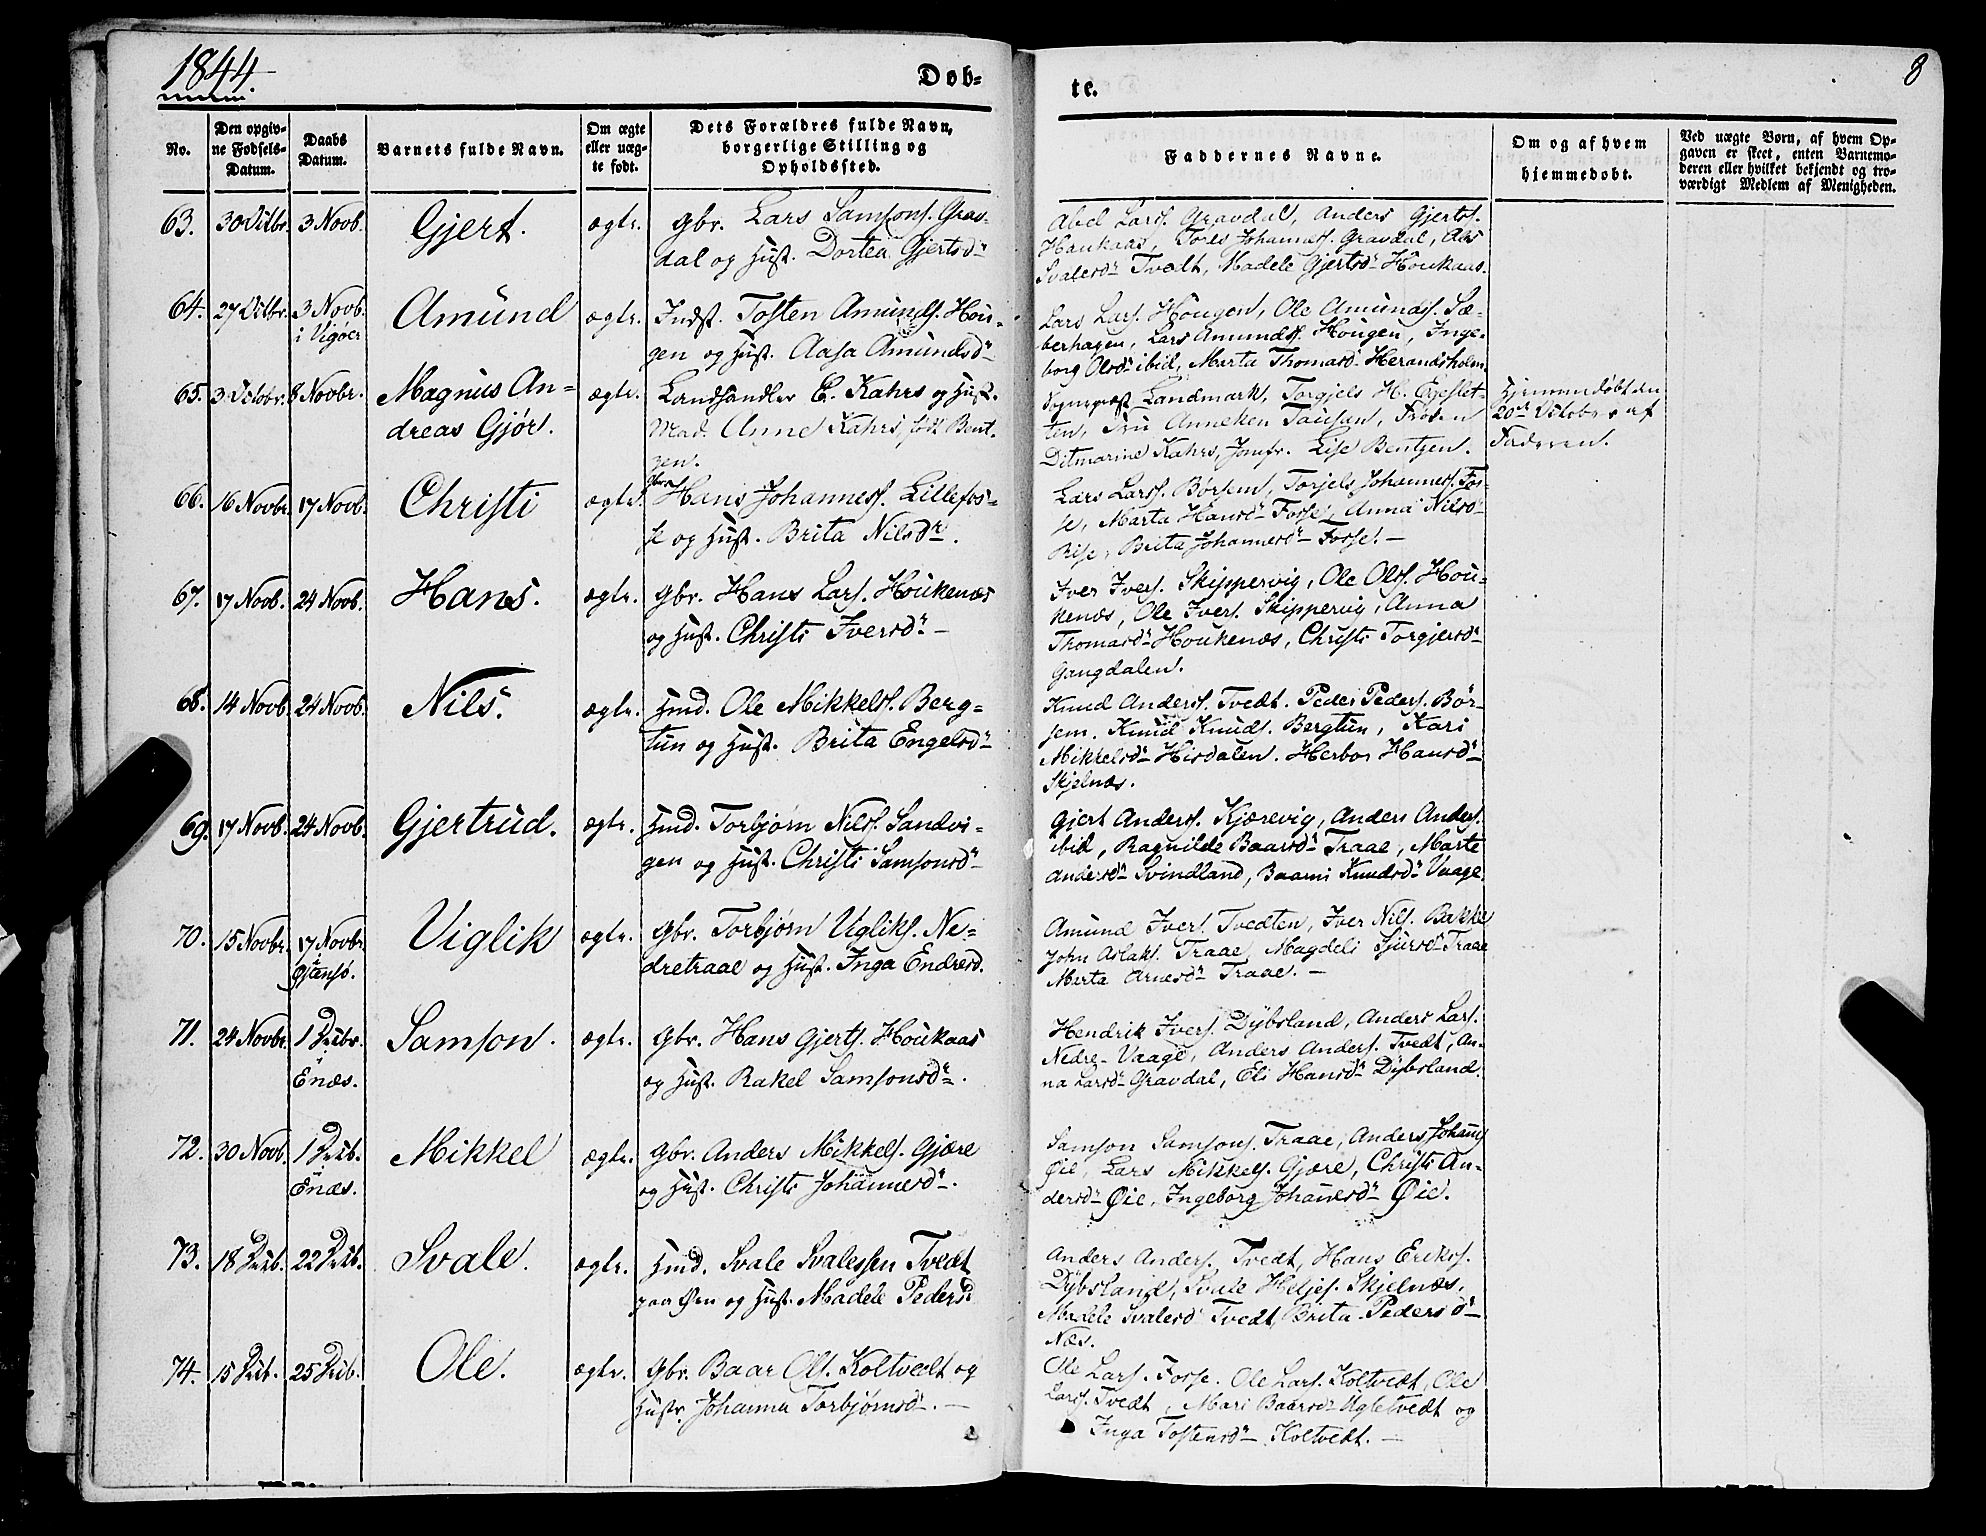 1844
Døb-
te.
8
No.
Den opgiv-
ne Fødsels-
Datum.
Daabs
Datum.
Barnets fulde Navn.
Om ægte
eller uæg-
te født.
Dets Forældres fulde Navn,
borgerlige Stilling og
Opholdssted.
Faddernes Navne.
Om og af hvem
hjemmedøbt.
Ved uægte Børn, af hvem Op-
gaven er skeet, enten Barnemo-
deren eller hvilket bekjendt og tro-
værdigt Medlem af Menigheden.
63. 30 Octbr. 3 Novb. Gjert. ægte. gbr. Lars Samsons. Grav-
dal og Hust. Dortea Gjertsdr
Abel Larss. Gravdal, Anders Gjerts.
Haukaas, Johanness. Gravdal,
Svalesdr Tvedt, Madele Gjertsdr Houkaas.
64. 27 Octbr. 3 Novb.
i Vigøer
Amund ægte. Indst. Tosten Amunds. Hou-
gen og Hust. Aasa Amundsdr
Lars Lars. Hougen, Ole Amunds. Sæ-
berhagen, Lars Amunds. Hougen, Inge-
borg Olsdr ibid, Marta Thomasdr Herandsholm
65. 3 Octobr. 8 Novbr. Magnus An-
dreas Gjør. ægte. Landhandler E. Kahrs og Hust.
Mad. Anne Kahrs, født Bent-
zen.
Sogneprest Landmark, Torgjels H.
Fru Anneken Frøken
Ditmarine Kahrs, Jomfr. Lise Bentzen.
Hjemmedøbt den
20de October af
Faderen.
66. 16 Novbr. 17 Novb. Christi ægte. Hans Johanness. Lillefos-
se og Hust. Brita Nilsdr.
Lars Larss. Børsem, Torjels Johanness. Fos-
se, Marta Hansdr Fosse, Anna Nilsdr
Rise, Brita Johannesdr Fosse. —
67. 17 Novb. 24 Novb. Hans. ægte. gbr. Hans Lars. Houkenæs
og Hust. Christi Iversdr. —
Iver Ivers. Skippervig, Ole Ols. Hou-
kenæs, Ole Ivers. Skippervig, Anna
Thomasdr Houkenæs, Christi Torgjersdr
Gangdalen.
68. 14 Novb. 24 Novb. Nils. ægte. Hmd. Ole Mikkels. Berg-
tun og Hust. Brita Engelsdr
Knud Anders. Tvedt. Peder Peders. Bør-
sem. Knud Knuds. Bergtun, Kari
Mikkelsdr Hisdalen. Herbor Hansdr
Skjelnæs.
69. 17 Novb. 24 Novb. Gjertrud. ægte. Hmd. Torbjørn Nils. Sandvi-
gen og Hust. Christi Samsonsdr
Gjert Anders. Kjærevig, Anders Anders.
ibid, Ragnilde Baarsdr Traae, Marte
Andersdr Svindland, Knudsdr Vaage.
70. 15 Novbr. 17 Novbr.
i
Viglik ægte. gbr. Torbjørn Ugliks. Ne-
dretraae og Hust. Inga Endresd.
Amund Ivers. Tvedten, Iver Nils. Bakke
John Aslaks. Traae, Magdeli Sjursdr Traae
Marta Arnesdr Traae. —
71. 24 Novbr. 1 Decbr.
i
Enæs. Samson. ægte. gbr. Hans Gjerts. Houkaas
og Hust. Rakel Samsonsdr.
Hendrik Ivers. Dybsland, Anders Lars.
Nedre-Vaage, Anders Anders. Tvedt, An-
na Larsdr Gravdal, Eli Hansdr Dybsland.
72. 30 Novb. 1 Decb.
i
Enæs. Mikkel ægte. gbr. Anders Mikkels. Gjære
og Hust. Christi Johannesdr.
Samson Samsons. Traae, Anders Johans.
Øie, Lars Mikkels. Gjære, Christi An-
dersdr Øie, Ingeborg Johanesdr Øie.
73. 18 Decb. 22 Decb. Svale. ægte. Hmd. Svale Svalessen Tvedt
paa Øen og Hust. Madele Pedersd
Anders Anders. Tvedt, Hans Eriks.
Dybsland, Svale Heljes. Skjelnæs,
Madele Svalesd Tvedt, Brita Pedersdr
Næs.
74. 15 Decb. 25 Decb. Ole. ægte. gbr. Baar Ols. Koltvedt og
Hustr. Johanna Torbjørnsdr. —
Ole Lars. Fosse. Ole Lars. Koltvedt, Ole
Larss. Tvedt, Mari Baarsdr Ugletvedt og
Inga Tostensdr Koltvedt. —